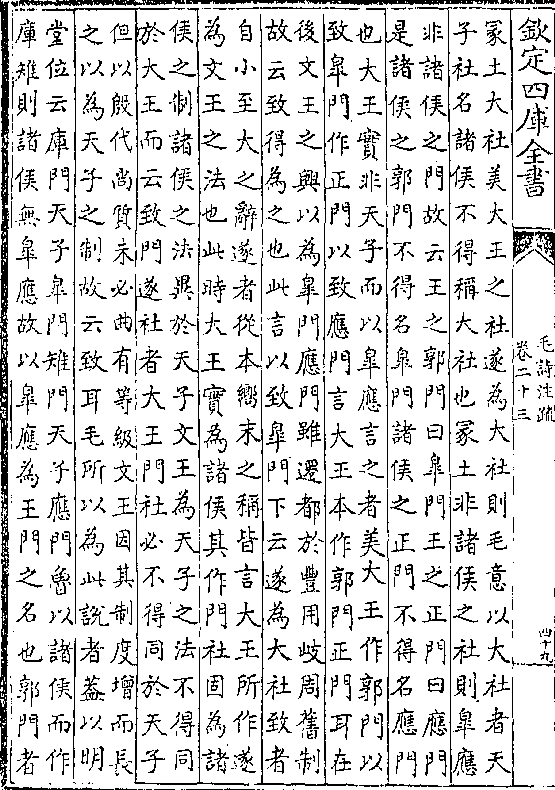 欽定四庫全書
毛詩注疏
卷二十三
四十九
冡土大社美大王之社遂為大社則毛意以大社者天
子社名諸侯不得稱大社也冡土非諸侯之社則臯應
非諸侯之門故云王之郭門曰臯門王之正門曰應門
是諸侯之郭門不得名臯門諸侯之正門不得名應門
也大王實非天子而以臯應言之者美大王作郭門以
致臯門作正門以致應門言大王本作郭門正門耳在
後文王之興以為臯門應門雖遷都於豐用岐周舊制
故云致得為之也此言以致臯門下云遂為大社致者
自小至大之辭遂者從本嚮末之稱皆言大王所作遂
為文王之法也此時大王實為諸侯其作門社固為諸
侯之制諸侯之法異於天子文王為天子之法不得同
於大王而云致門遂社者大王門社必不得同於天子
但以殷代尚質未必曲有等級文王因其制度增而長
之以為天子之制故云致耳毛所以為此說者蓋以明
堂位云庫門天子臯門雉門天子應門魯以諸侯而作
庫雉則諸侯無臯應故以臯應為王門之名也郭門者